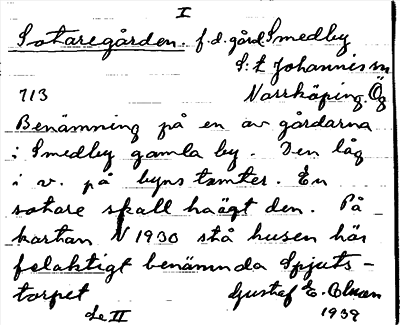 I
Sotaregården. f.d. gård Smedby
S:t Johannis sn
713 Norrköping. Ög
Benämning på en av gårdarna
i Smedby gamla by. Den låg
i v. på byns tomter. En
sotare skall ha ägt den. På
kartan N 1930 stå husen här
felaktigt benämnda Spjuts-
torpet Gustaf E. Olsson
Se II 1939